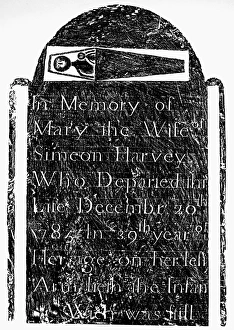 In Memory of
Mary the Wife of
Simeon Harvey
Who Departed this
Life Decembr 20th
178 In 39th year of
Her age on her left
Arm lieth the Infant
Which was still